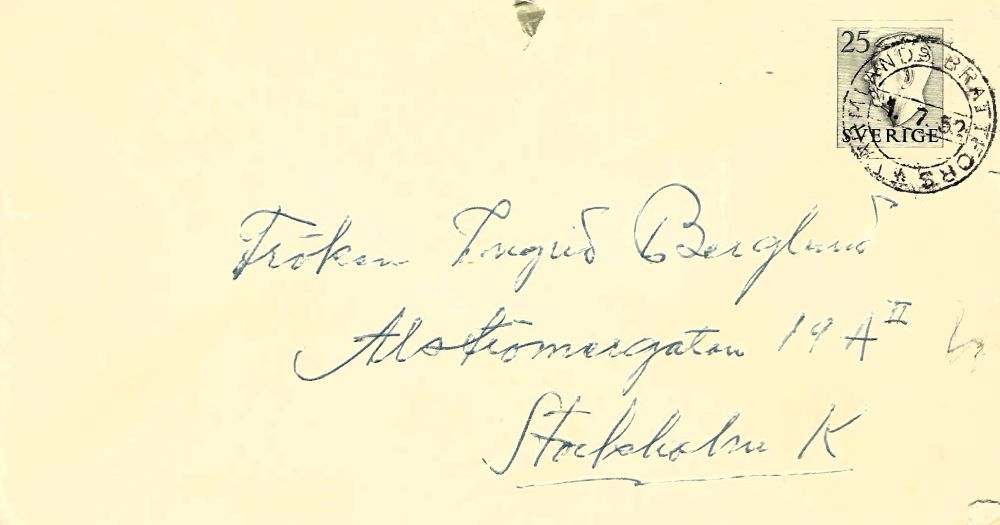 25
SVERIGE
VÄRMLANDS BRATTFORS
1.7.52
Fröken Ingrid Berglund
Alströmergatan 19 A II
Stockholm K